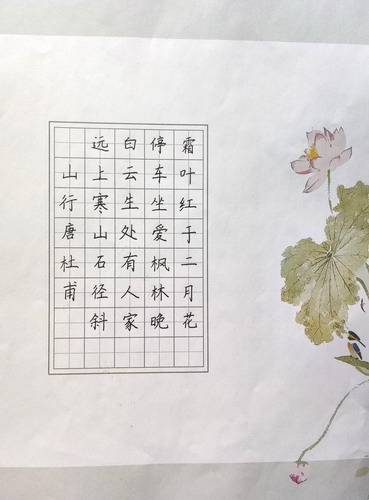 山行唐杜甫
远上寒山石径斜
白云生处有人家
停车坐爱枫林晚
霜叶红于二月花